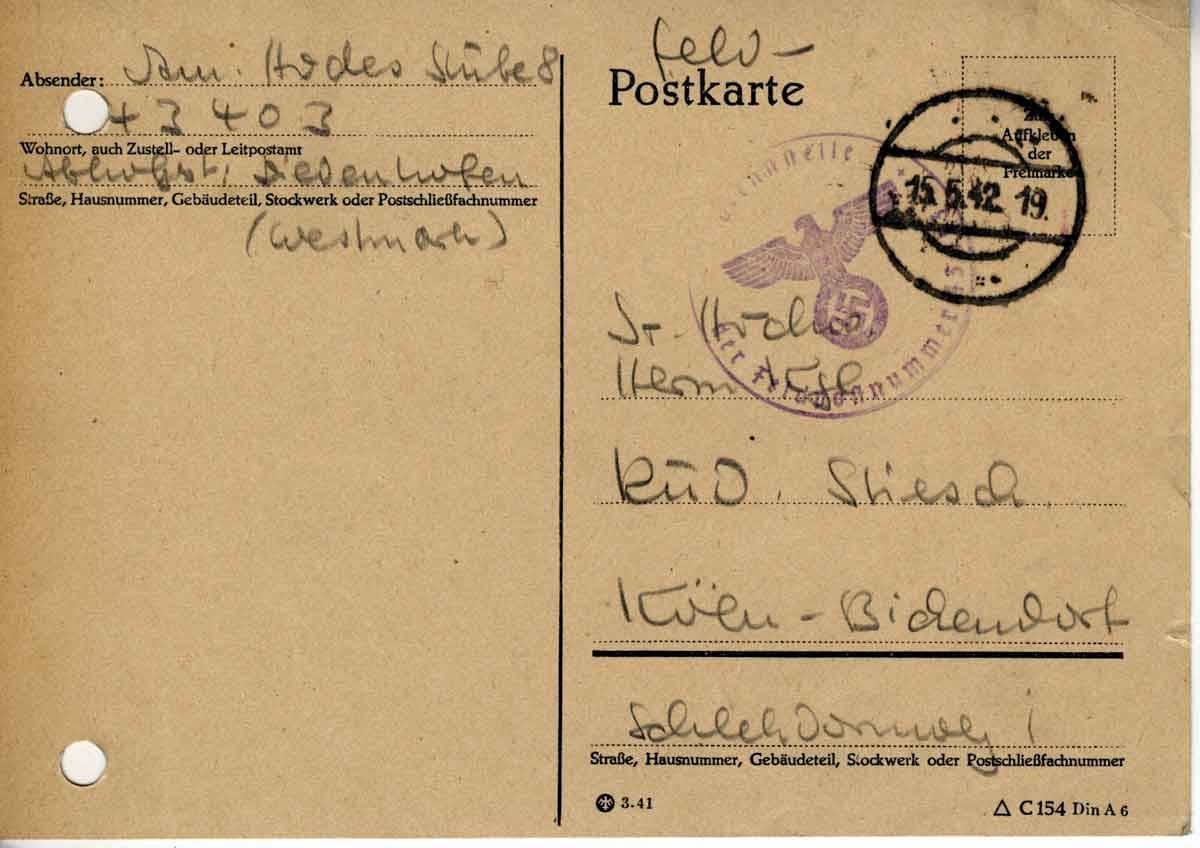 Absender: Stube 8
43403
Wohnort, auch Zustell- oder Leitpostamt
Diedenhofen
Straße, Hausnummer, Gebäudeteil, Stockwerk oder Postschließfachnummer
(Westmark)
Feld-
Postkarte
Zum
Aufkleben
der
Freimarke
15.5.42.19.
der Feldpostnummer
Herm.
RüD.
Köln-Bickendorf
Schlehdornweg 1
Straße, Hausnummer, Gebäudeteil, Stockwerk oder Postschließfachnummer
3.41
C154 Din A 6